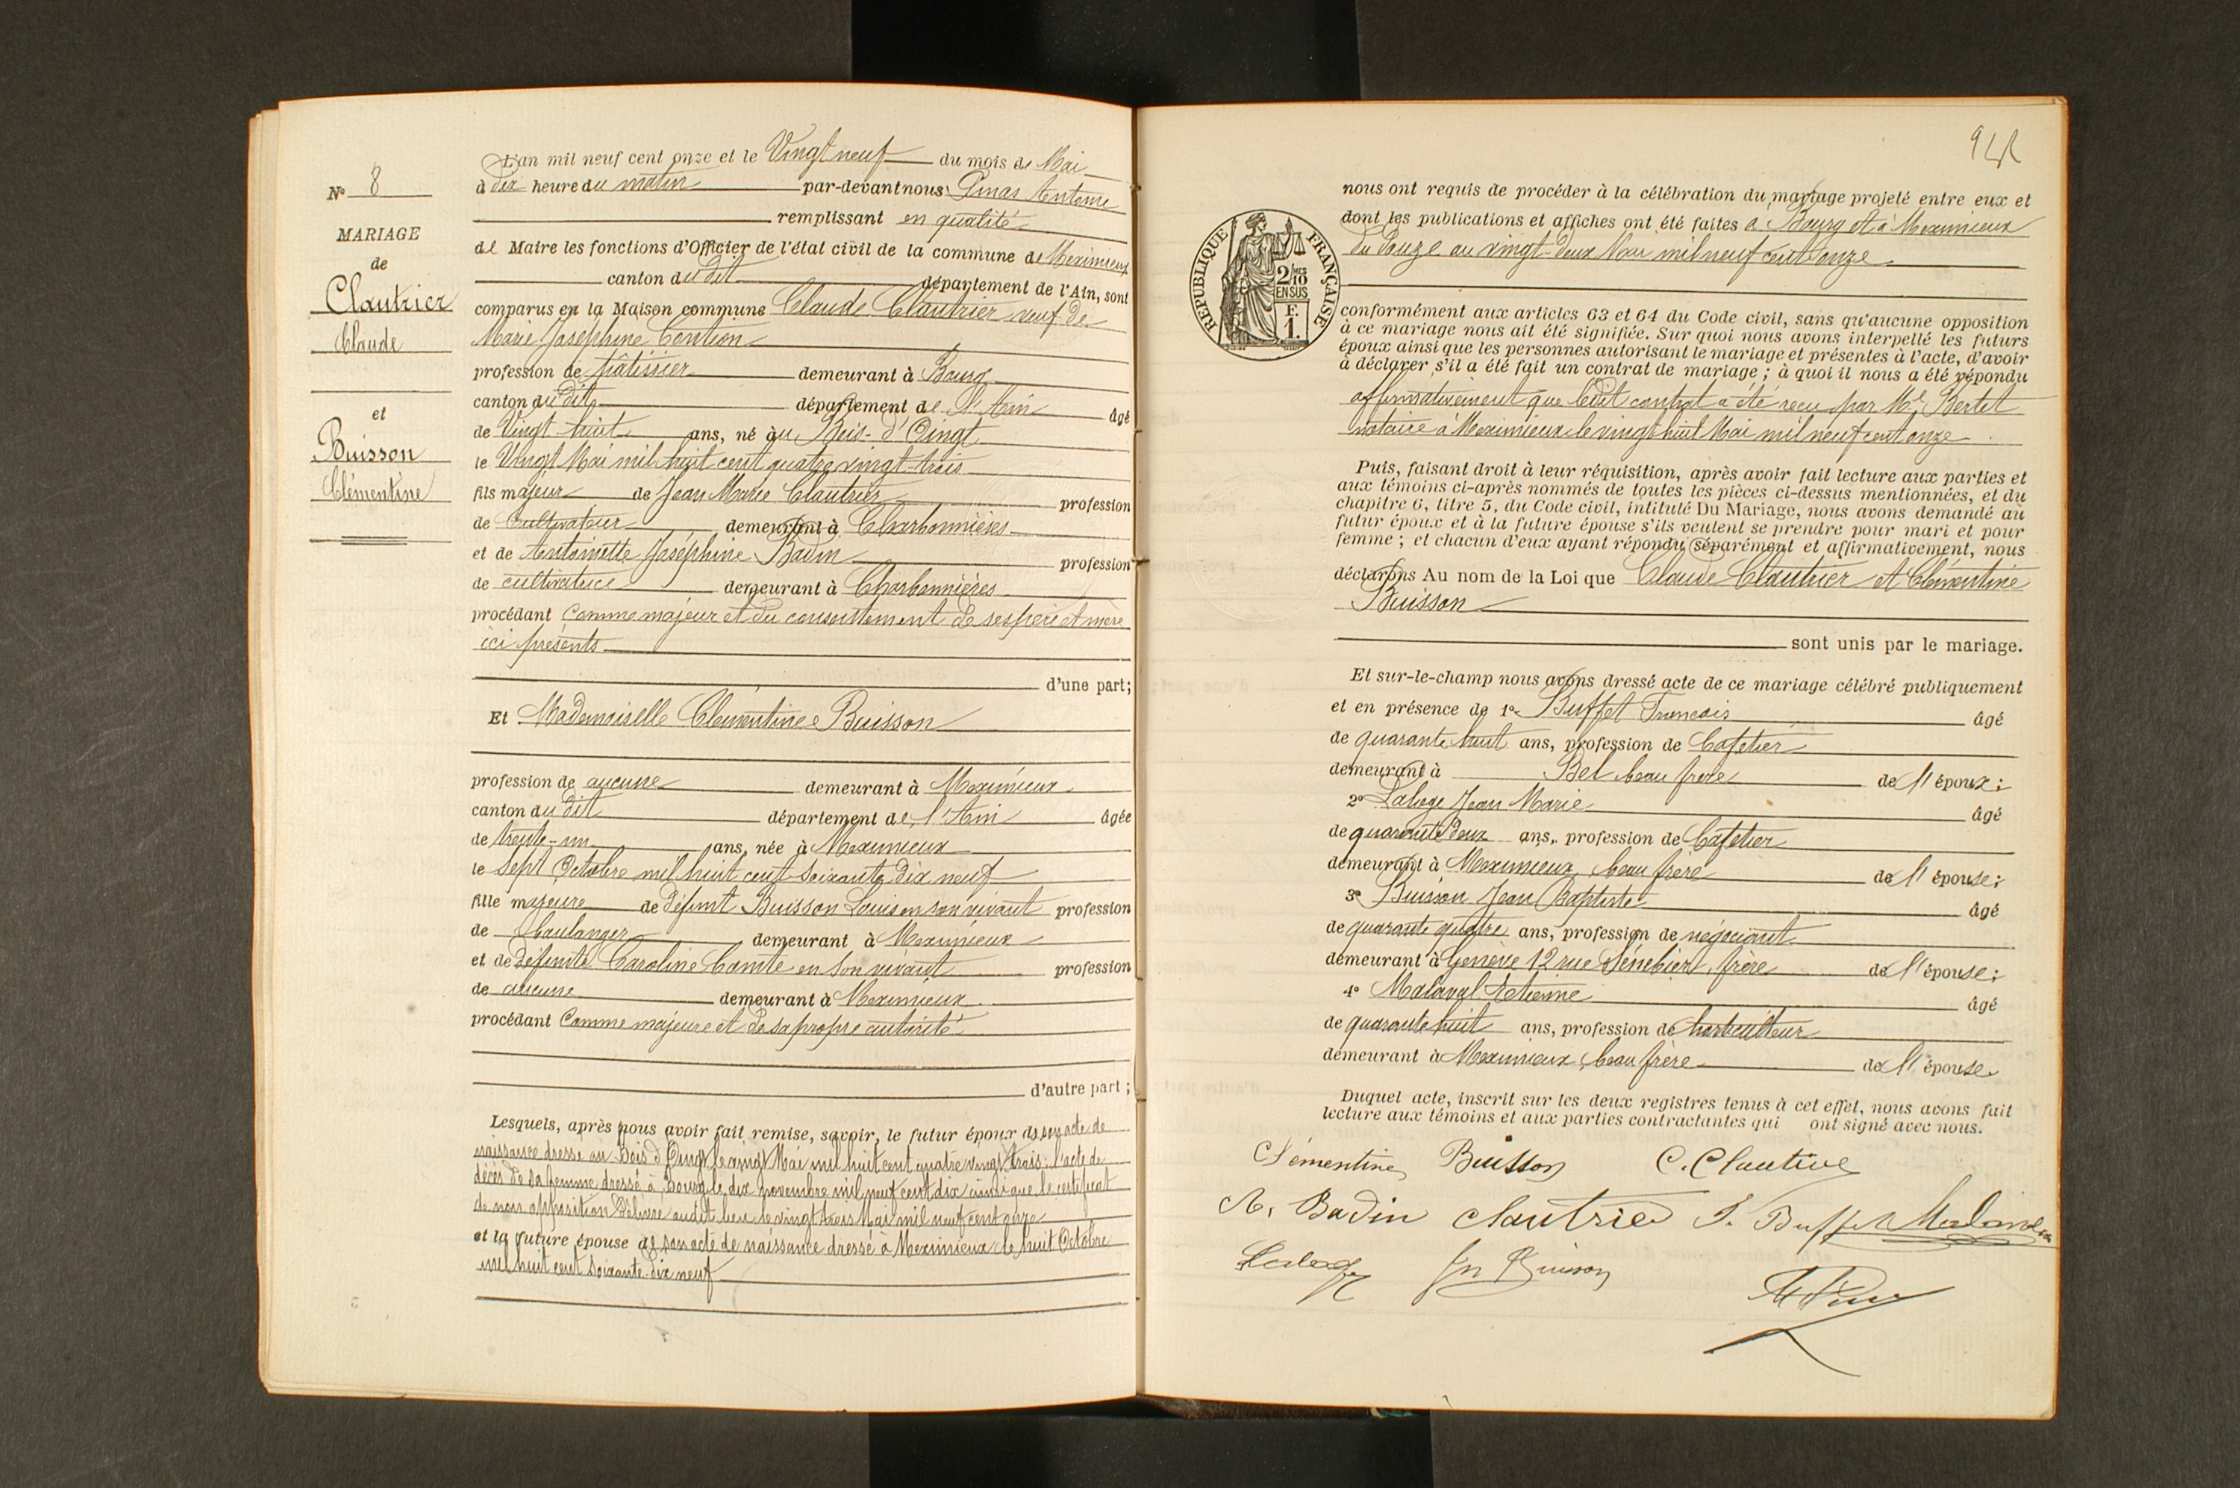 L'an mil neuf cent onze et le Vingt neuf du mois de Mai
à dix heure du matin par-devant nous Antoine
remplissant en qualité
de Maire les fonctions d'Officier de l'état civil de la commune de Meximieux
canton du dit département de l'Ain, sont
comparus en la Maison commune Claude Clautrier veuf de
Marie Josephine
profession de pâtissier demeurant à Bourg
canton du dit département de l'Ain âgé
de Vingt huit ans, né au Bois-d'Oingt
le Vingt Mai mil huit cent quatre vingt-trois
fils majeur de Jean Marie Clautrier profession
de Cultivateur demeurant à Charbonnières
et de Antoinette Joséphine Badin profession
de cultivatrice demeurant à Charbonnières
procédant comme majeur et du consentement de ses père et mère
ici présents
d'une part;
N° 8
MARIAGE
de
Clautrier
Claude
et
Buisson
Clémentine
Et Mademoiselle Clémentine Buisson
profession de aucune demeurant à Meximieux
canton du dit département de l'Ain âgée
de trente-un ans, née à Meximieux
le sept Octobre mil huit cent soixante dix neuf
fille majeure de défunt Buisson Louis en son vivant profession
de boulanger demeurant à Meximieux
et de défunte Caroline Comte en son vivant profession
de aucune demeurant à Meximieux
procédant comme majeure et de sa propre autorité
d'autre part;
Lesquels, après nous avoir fait remise, savoir, le futur époux de son acte de
naissance dressé au Bois d'Oingt le vingt Mai mil huit cent quatre vingt trois; l'acte de
décès de sa femme dressé à Bourg le dix novembre mil neuf cent dix ainsi que le certificat
de non opposition délivré audit lieu le vingt trois Mai mil neuf cent onze
et la future épouse de son acte de naissance dressé à Meximieux le huit Octobre
mil huit cent soixante dix neuf
nous ont requis de procéder à la célébration du mariage projeté entre eux et
dont les publications et affiches ont été faites à Bourg et à Meximieux
du douze au vingt-deux Mai mil neuf cent onze
RÉPUBLIQUE FRANÇAISE
2/10
MES
EN SUS
F.
1.
conformément aux articles 63 et 64 du Code civil, sans qu'aucune opposition
à ce mariage nous ait été signifiée. Sur quoi nous avons interpellé les futurs
époux ainsi que les personnes autorisant le mariage et présentes à l'acte, d'avoir
à déclarer s'il a été fait un contrat de mariage; à quoi il nous a été répondu
affirmativement que ledit contrat a été reçu par Me Bertet
notaire à Meximieux le vingt huit Mai mil neuf cent onze.
Puis, faisant droit à leur réquisition, après avoir fait lecture aux parties et
aux témoins ci-après nommés de toutes les pièces ci-dessus mentionnées, et du
chapitre 6, titre 5, du Code civil, intitulé Du Mariage, nous avons demandé au
futur époux et à la future épouse s'ils veulent se prendre pour mari et pour
femme; et chacun d'eux ayant répondu séparément et affirmativement, nous
déclarons Au nom de la Loi que Claude Clautrier et Clémentine
Buisson
sont unis par le mariage.
Et sur-le-champ nous avons dressé acte de ce mariage célébré publiquement
et en présence de 1° Buffet François âgé
de quarante huit ans, profession de Cafetier
demeurant à beau frère de l'époux;
2° Laloge Jean Marie âgé
de quarante deux ans, profession de Cafetier
demeurant à Meximieux beau frère de l'épouse;
3° Buisson Jean Baptiste âgé
de quarante quatre ans, profession de négociant
demeurant à Genève 12 rue Sénebier, frère de l'épouse;
4° Malaval Etienne âgé
de quarante huit ans, profession de horticulteur
demeurant à Meximieux, beau frère de l'épouse.
Duquel acte, inscrit sur les deux registres tenus à cet effet, nous avons fait
lecture aux témoins et aux parties contractantes qui ont signé avec nous.
Clémentine Buisson C. Clautrier
A. Badin Clautrier F. Buffet Malaval
Laloge Jn Buisson